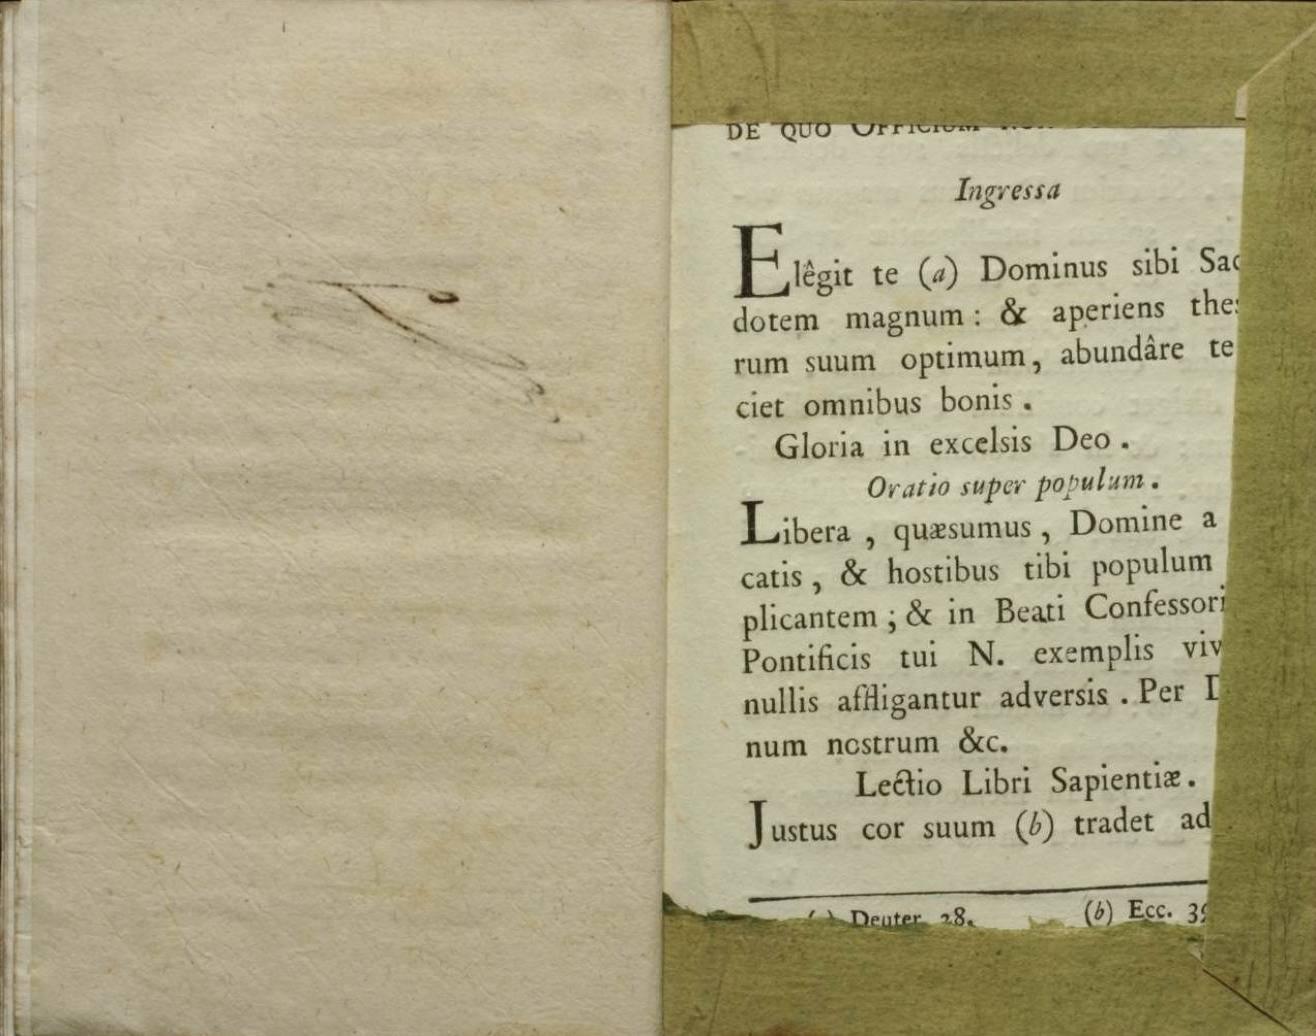 DE QUO OFFICIUM
Ingressa
Elêgit te (a) Dominus sibi Sac
dotem magnum: & aperiens thes
rum suum optimum, abundâre te
ciet omnibus bonis.
Gloria in excelsis Deo.
Oratio super populum.
Libera, quæsumus, Domine a
catis, & hostibus tibi populum
plicantem; & in Beati Confessori
Pontificis tui N. exemplis viv
nullis affligantur adversis. Per D
num nostrum &c.
Lectio Libri Sapientiæ.
Justus cor suum (b) tradet ad
Deuter 28. (b) Ecc. 39